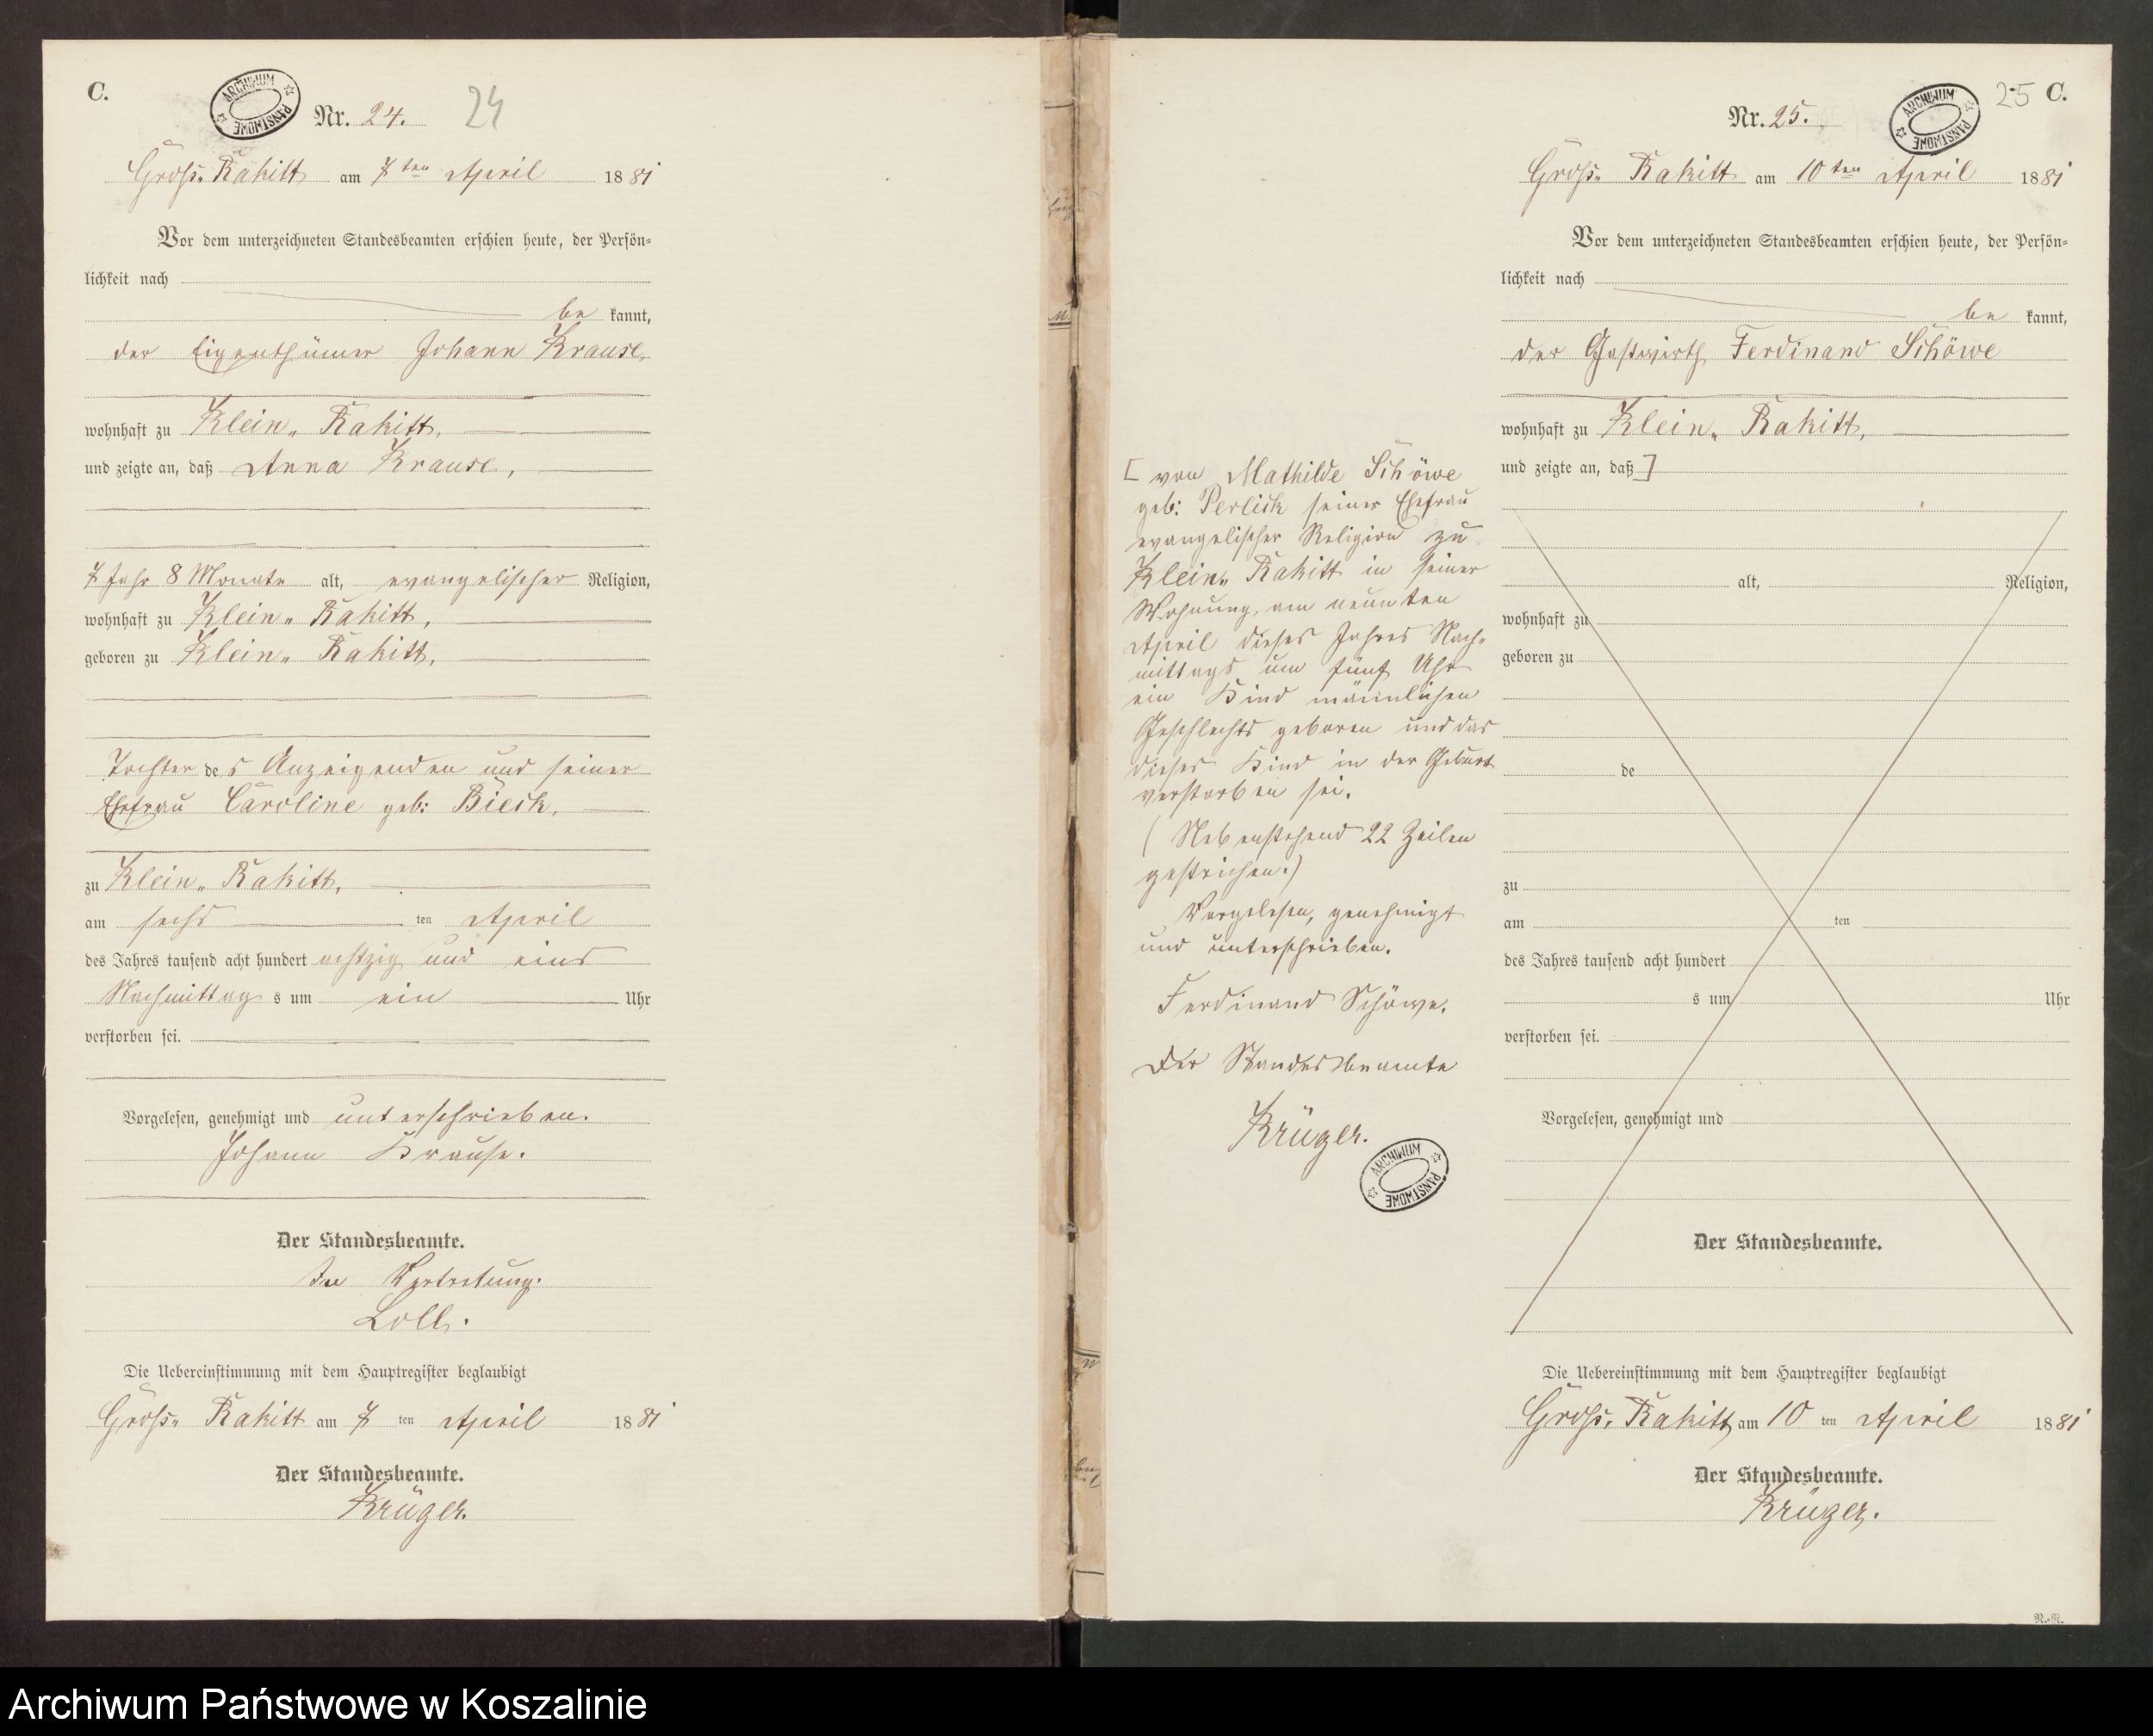 C.
ARCHIWUM PAŃSTWOWE
Nr. 24. 24
Groß- Rakitt am 7ten April 1881
Vor dem unterzeichneten Standesbeamten erschien heute, der Persön-
lichkeit nach
be kannt,
der Eigenthümer Johann Krause,
wohnhaft zu Klein- Rakitt,
und zeigte an, daß Anna Krause,
7 Jahr 8 Monate alt, evangelischer Religion,
wohnhaft zu Klein- Rakitt,
geboren zu Klein- Rakitt,
Tochter des Anzeigenden und seiner
Ehefrau Caroline geb: Bieck,
zu Klein- Rakitt,
am sechs ten April
des Jahres tausend acht hundert achtzig und eins
Nachmittag s um ein Uhr
verstorben sei.
Vorgelesen, genehmigt und unterschrieben.
Johann Krause.
Der Standesbeamte.
In Vertretung.
Loll.
Die Uebereinstimmung mit dem Hauptregister beglaubigt
Groß- Rakitt am 7 ten April 1881
Der Standesbeamte.
Krüger.
25 C.
ARCHIWUM PAŃSTWOWE
Nr. 25.
Groß- Rakitt am 10ten April 1881
Vor dem unterzeichneten Standesbeamten erschien heute, der Persön-
lichkeit nach
be kannt,
der Gastwirth Ferdinand Schöwe
wohnhaft zu Klein- Rakitt,
und zeigte an, daß ]
[ von Mathilde Schöwe
geb: Perlick seiner Ehefrau
evangelischer Religion zu
Klein- Rakitt in seiner
Wohnung, am neunten
April dieses Jahres Nach-
mittags um fünf Uhr
ein Kind männlichen
Geschlechts geboren und das
dieses Kind in der Geburt
verstorben sei.
( Nebenstehend 22 Zeilen
gestrichen.)
Vorgelesen, genehmigt
und unterschrieben.
Ferdinand Schöwe.
Der Standesbeamte
Krüger.
ARCHIWUM PAŃSTWOWE
alt, Religion,
wohnhaft zu
geboren zu
de
zu
am ten
des Jahres tausend acht hundert
s um Uhr
verstorben sei.
Vorgelesen, genehmigt und
Der Standesbeamte.
Die Uebereinstimmung mit dem Hauptregister beglaubigt
Groß- Rakitt am 10 ten April 1881
Der Standesbeamte.
Krüger.
Archiwum Państwowe w Koszalinie